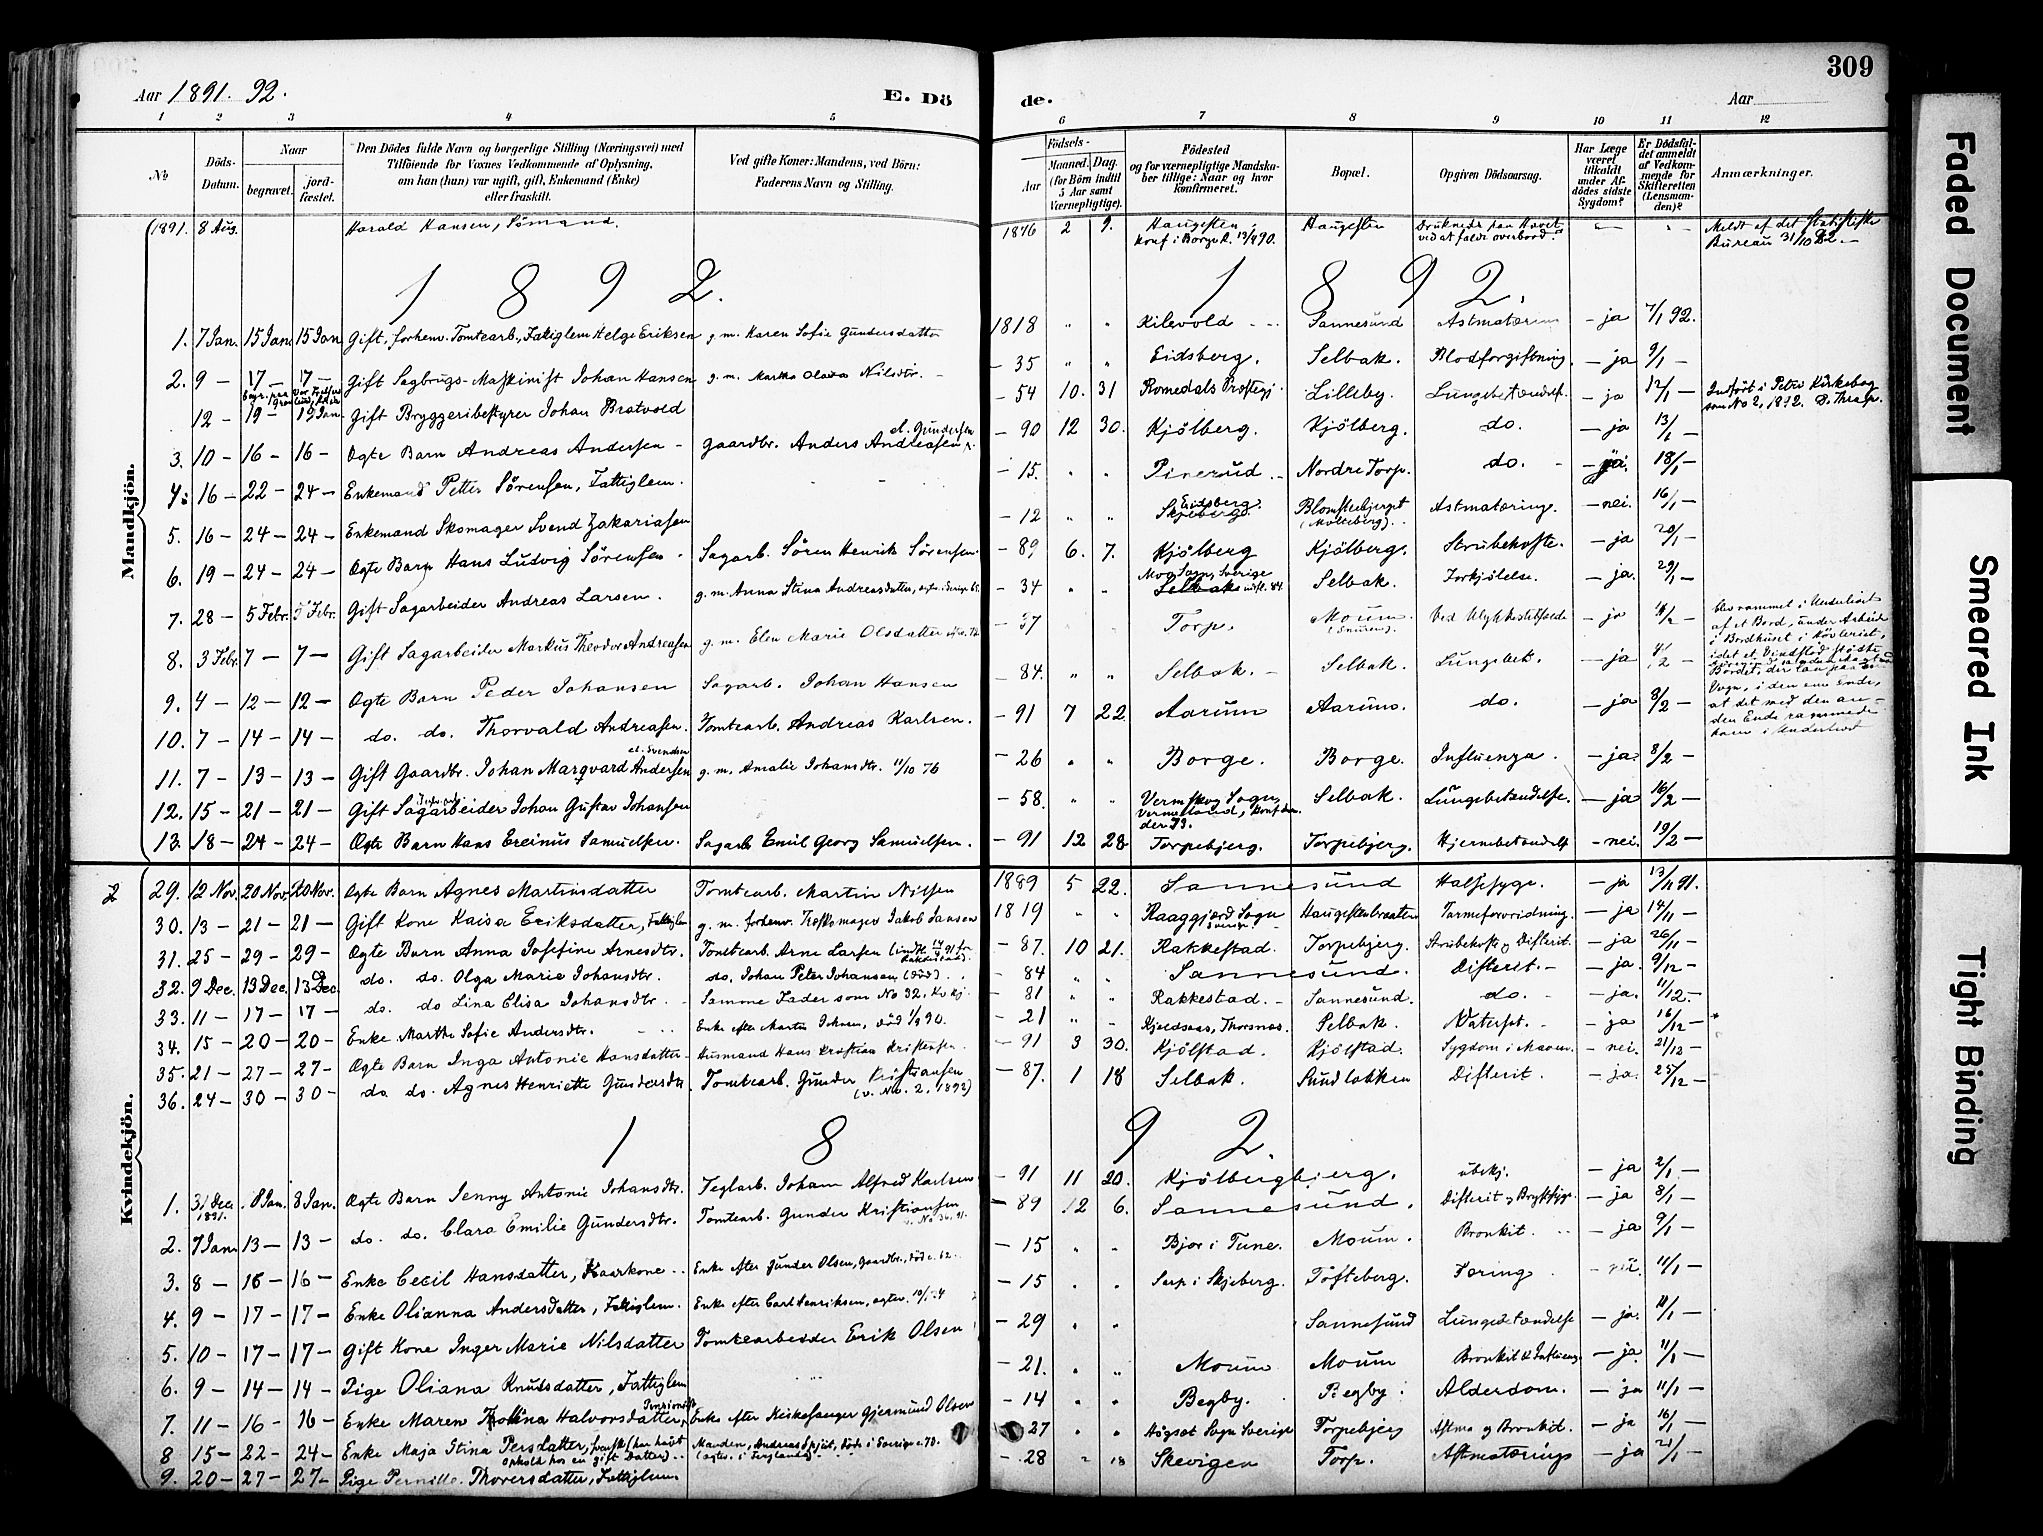 309
Aar 1891. 92.
E. Dö
de.
Aar
1 2 3 4 5 6 7 8 9 10 11 12
No
Döds-Datum.
Naar
begravet.
jord-fæstet.
Den Dödes fulde Navn og borgerlige Stilling (Næringsvei) med
Tilföiende for Voxnes Vedkommende af Oplysning,
om han (hun) var ugift, gift, Enkemand (Enke)
eller fraskilt.
Ved gifte Koner: Mandens, ved Börn:
Faderens Navn og Stilling.
Födsels-
Aar
Maaned. Dag.
(for Börn indtil
5 Aar samt
Værnepligtige).
Födested
og for værnepligtige Mandska-
ber tillige: Naar og hvor
konfirmeret.
Bopæl.
Opgiven Dödsaarsag.
Har Læge
været
tilkaldt
under Af-
dödes sidste
Sygdom?
Er Dödsfal-
det anmeldt
af Vedkom-
mende for
Skifteretten
(Lensman-
den)?
Anmærkninger.
Mandkjön.
(1891. 8 Aug. Harald Hansen, Sömand. 1876 2 9. Haugesten, konf i Borge K. 13/4 90. Haugesten Druknede paa Havet ved at falde overbord. Meldt af det statistiske Bureau 31/10 92.
1 8 9 2. 1 8 9 2.
1. 7 Jan. 15 Jan. 15 Jan. Gift, forhenv. Tomtearb., Fattiglem Helge Eriksen g. m. Karen Sofie Gundersdatter 1818 " " Kilevold Sannesund – ja 7/1 92.
2. 9 – 17 – 17 – Gift Sagbrugs-Maskinist Johan Hansen g. m. Martha Olava Nilsdtr. – 35 " " Eidsberg. Selbak. Blodforgiftning. – ja 9/1 –
12 – 19 – 19 Jan. Gift Bryggeribestyrer Johan Bratvold – 54 10. 31 Romedals Præstegj. Lilleby. Lungebetændelse. – ja 12/1 – Indfört i Petri Kirkebog som No 2, 1892.
3. 10 – 16 – 16 – Ægte Barn Andreas Andersen – Gaardbr. Anders Andreasen – 90 12 30. Kjölberg. Kjölberg. do. – ja 13/1 –
4. 16 – 22 – 24 – Enkemand Petter Sörensen, Fattiglem. – 15. " " Pinerud Nordre Torp. do. – ja. 18/1 –
5. 16 – 24 – 24 – Enkemand Skomager Svend Zakariasen – 12 " " Eidsberg. Skjeberg. – nei. 16/1 –
6. 19 – 24 – 24 – Ægte Barn Hans Ludvig Sörensen Sagarb. Sören Henrik Sörensen. – 89 6. 7. Kjölberg Kjölberg. Strubehoste. – ja 20/1 –
7. 28 – 5 Febr. 5 Febr. Gift Sagarbeider Andreas Larsen. g. m. Anna Stina Andreasdatter – 34 " " Sogn, Sverige Selbak. Forkjölelse. – ja. 29/1 –
8. 3 Febr. 7 – 7 – Gift Sagarbeider Markus Theodor Andreasen g. m. Elen Marie Olsdatter – 37 Torp. Moum. Ved Ulykkestilfælde – ja 4/2 –
9. 4 – 12 – 12 – Ægte Barn Peder Johansen Sagarb. Johan Hansen – 84. " " Selbak. – Selbak. Lungebet. – ja 4/2 –
10. 7 – 14 – 14 – do. do. Thorvald Andreasen. Tomtearb. Andreas Karlsen. – 91 7 22. Aarum Aarum. do. – ja 8/2 –
11. 7 – 13 – 13 – Gift Gaardbr. Johan Marqvard Andersen el. Svendsen g. m. Amalie Johansdtr. 11/10 76 – 26 " " Borge. Borge. Influenza. – ja. 8/2 –
12. 15 – 21 – 21 – Gift Sagarbeider Johan Gustav Johansen – 58. " " Vermskog Sogn, Vermeland, Selbak. Lungebetændelse. – ja 16/2 –
13. 18 – 24 – 24 – Ægte Barn Hans Samuelsen. Sagarb Emil Georg Samuelsen. – 91 12 28. Torpebjerg. Torpebjerg. Hjernebetændelse – nei. 19/2 –
blev rammet i Underlivet
af et Bord, under Arbeide
i Bordhuset i Hövleriet,
idet et Vindstöd
Vogn, i den ene Ende,
at det med den an-
den Ende rammede
ham i Underlivet
Kvindekjön.
29. 12 Nov. 20 Nov. 20 Nov. Ægte Barn Agnes Martinsdatter Tomtearb. Martin Nilsen 1889 5 22. Sannesund Halssyge. – ja 13/11 91.
30. 13 – 21 – 21 – Gift Kone Kaisa Eriksdatter, Fattiglem g. m. forhenv. Træskomager Jakob Jansen 1819 " " Sogn Sverige. Haugestenbraaten Tarmeforvridning. – ja 14/11 –
31. 25 – 29 – 29 – Ægte Barn Anna Josefine Arnesdtr. Tomtearb. Arne Larsen – 87. 10 21. Rakkestad. Torpebjerg. Strubehoste og Difterit. – ja 26/11 –
32. 9 Dec. 13 Dec. 13 Dec. do. do. Olga Marie Johansdtr. do. Johan Peter Johansen (död). – 84 " " Sannesund. Difterit. – – ja. 9/12 –
33. 11 – 17 – 17 – do. do Lina Elisa Johansdtr. Samme Fader som No 32, Kvkj. – 81 " " Rakkestad. – Sannesund. do. – ja. 11/12. –
34. 15 – 20 – 20 – Enke Marthe Sofie Andersdtr. Enke efter Martin Johnsen, död 1/9 90. – 21 " " Kjeldsaas, Thorsnæs. Selbak. Vatersot. – – ja 16/12 –
35. 21 – 27 – 27 – Ægte Barn Inga Antonie Hansdatter Husmand Hans Kristian Kristensen – 91 3 30. Kjölstad. Kjölstad. Sygdom i Maven. – nei. 21/12 –
36. 24 – 30 – 30 – do. do. Agnes Henriette Gundersdtr. Tomtearb. Gunder Kristiansen (v. No. 2. 1892) – 87. 1 18 Selbak. Sundlökken Difterit. – ja. 25/12 –
1 8 9 2.
1. 31 Dec. 1891. 8 Jan. 8 Jan. Ægte Barn Jenny Antonie Johansdtr. Teglarb. Johan Alfred Karlsen – 91 11 20. Kjölbergbjerg. ubekj. – ja 2/1 –
2. 7 Jan. 13 – 13 – do. do. Clara Emilie Gundersdtr. Tomtearb. Gunder Kristiansen v. No 36. 91. – 89 12 6. Sannesund. Difterit og Brystsyge. – ja 8/1 –
3. 8 – 16 – 16 – Enke Cecil Hansdatter, Kaarkone Enke efter Gunder Olsen, Gaardbr., död c. 62. – 15 " " Bjor i Tune. Moum. Bronkit. – ja 9/1 –
4. 9 – 17 – 17 – Enke Olianna Andersdatter, Fattiglem. Enke efter Carl Henriksen, – 15. " " Sarp i Skjeberg. Töfteberg. Tæring – nei. 11/1 –
5. 10 – 17 – 17 – Gift Kone Inger Marie Nilsdatter Tomtearbeider Erik Olsen – 29 " " Sannesund Lungebetændelse – ja. 11/1 –
6. 9 – 14 – 14 – Pige Oliana Knutsdatter, Fattiglem – 21. " " Moum Moum Bronkit & Influenz. – ja. 11/1 –
7. 11 – 16 – 16 – Enke Maren Halvorsdatter, Enke efter Kirkesanger Gjermund Olsen – 14 " " Begby. Begby. Alderdom. – ja 11/1 –
8 15 – 22 – 24 – Enke Maja Stina Persdatter, svensk (har havt Ophold hos en gift Datter) Manden, Andreas död i Sverige c. 70. – 27 " " Sogn Sverige Torpebjerg Astma og Bronkit. – ja 16/1 –
9. 20 – 27 – 27 – Pige Pernille Thoversdatter, Fattiglem – 28 " " Skevigen Torp. – ja 21/1 –
Faded Document
Smeared Ink
Tight Binding